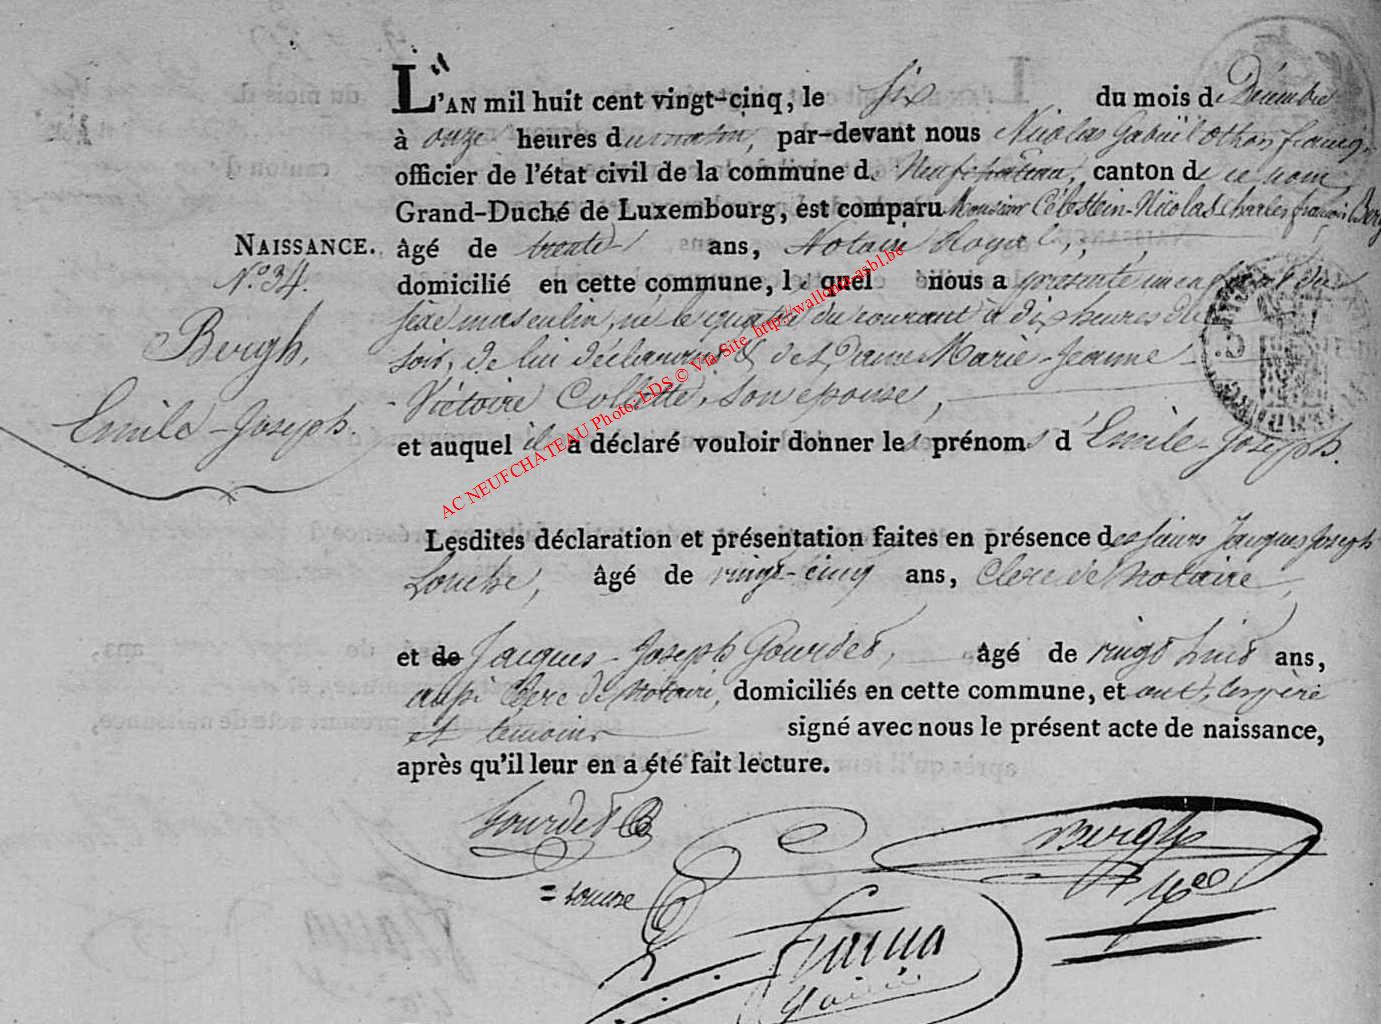 L'AN mil huit cent vingt-cinq, le six du mois de Décembre
à onze heures du matin, par-devant nous Nicolas Gabriel Othon françq,
officier de l'état civil de la commune de Neufchateau, canton de ce nom,
Grand-Duché de Luxembourg, est comparu Monsieur Célestein-Nicolas Charles françois Bergh
NAISSANCE. âgé de trente ans, Notaire Royal,
N.o 34. domicilié en cette commune, lequel nous a presenté un enfant du
sexe masculin, né le quatre du courant à dix heures du
Bergh, soir, de lui déclarant & de Dame Marie-Jeanne
Emile-Joseph. Victoire Collette, son epouse,
et auquel il a déclaré vouloir donner les prénoms d'Emile-Joseph.
AC NEUFCHATEAU Photo: EDS © Via Site http://wallonia-asbl.be
Lesdites déclaration et présentation faites en présence des sieurs Jacques Joseph
Louche, âgé de vingt-cinq ans, Clerc de Notaire,
et de Jacques-Joseph Gourdet, âgé de vingt huit ans,
aussi Clerc de Notaire, domiciliés en cette commune, et ont les père
et temoins signé avec nous le présent acte de naissance,
après qu'il leur en a été fait lecture.
Gourdet
Bergh